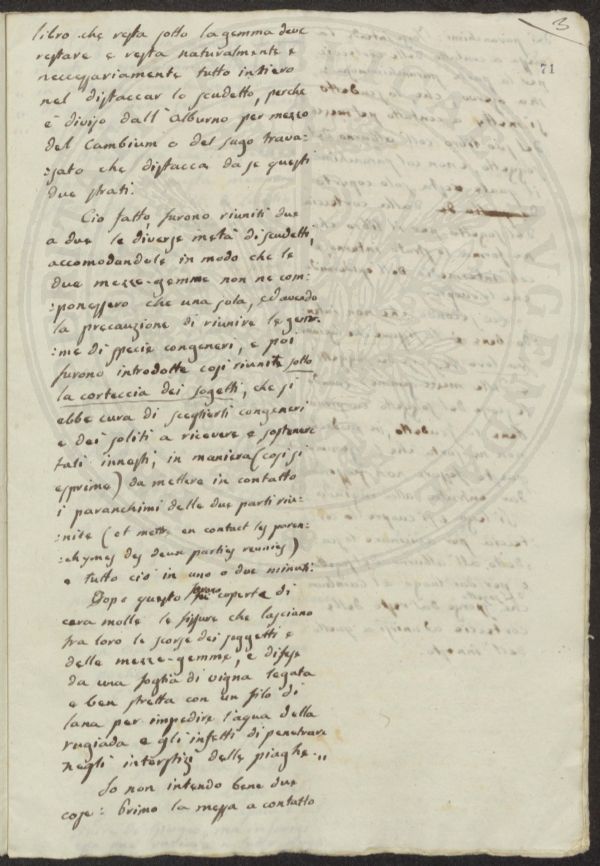 3
71
libro che resta sotto la gemma deve
restare e resta naturalmente e
neccessariamente tutto intiero
nel distaccar lo scudetto, perche
è diviso dall'Alburno per mezzo
del Cambium o del sugo trava-
:sato che distacca da se questi
due strati.
Ciò fatto, furono riuniti due
a due le diverse metà di scudetti,
accomodandole in modo che le
due mezze-gemme non ne com:
:ponessero che una sola, ed avendo
la precauzione di riunire le gem:
:me di specie congeneri, e poi
furono introdotte così riunite sotto
la corteccia dei sogetti, che si
ebbe cura di sceglierli congeneri
e dei soliti a ricevere e sostenere
tali innesti, in maniera (così si
esprime) da mettere in contatto
i paranchimi delle due parti riu:
:nite (et mettre en contact les paren:
:chymes des deux parties reunies)
e tutto ciò in uno o due minuti.
Dopo questo furono coperte di
cera molle le fissure che lasciano
fra loro le scorze dei soggetti e
delle mezze-gemme, e difese
da una foglia di vigna legata
e ben stretta con un filo di
lana per impedire l'aqua della
rugiada e gli insetti di penetrare
negli interstizi delle piaghe.,,
Io non intendo bene due
cose: Primo la messa a contatto